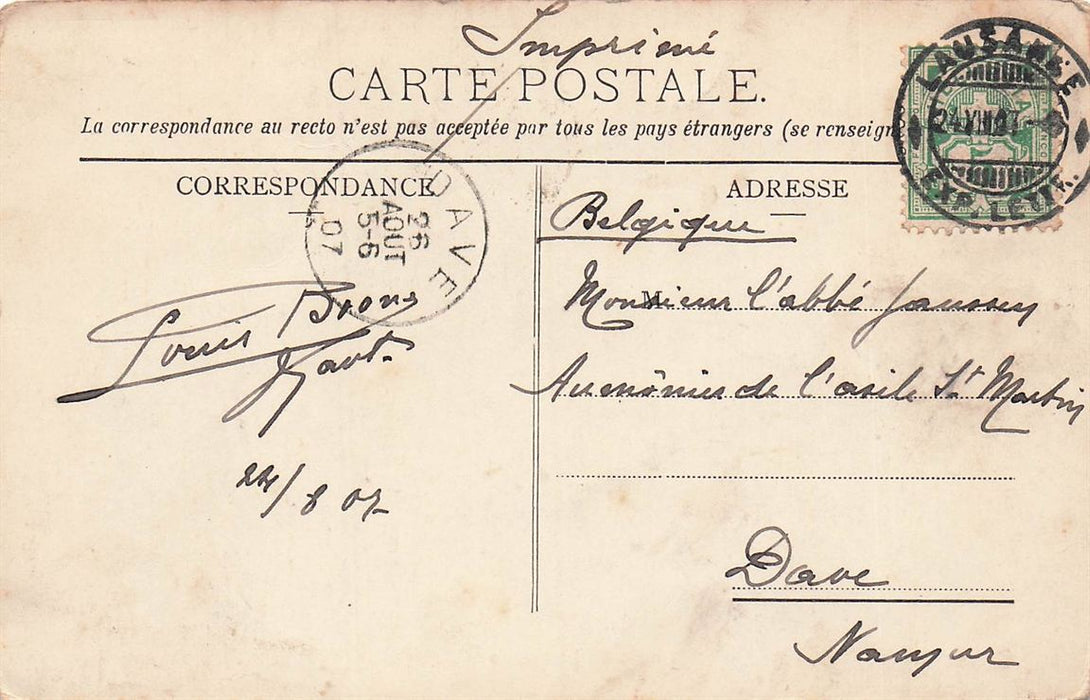 Imprimé
CARTE POSTALE.
La correspondance au recto n'est pas acceptée par tous les pays étrangers (se renseign
CORRESPONDANCE
ADRESSE
LAUSANNE
24.VIII.07
EXP. LETTR.
DAVE
26
AOUT
5-6
07
Belgique
Monsieur l'abbé Janssen
Aumônier de l'asile St Martin
Dave
Namur
Louis
24/8 07